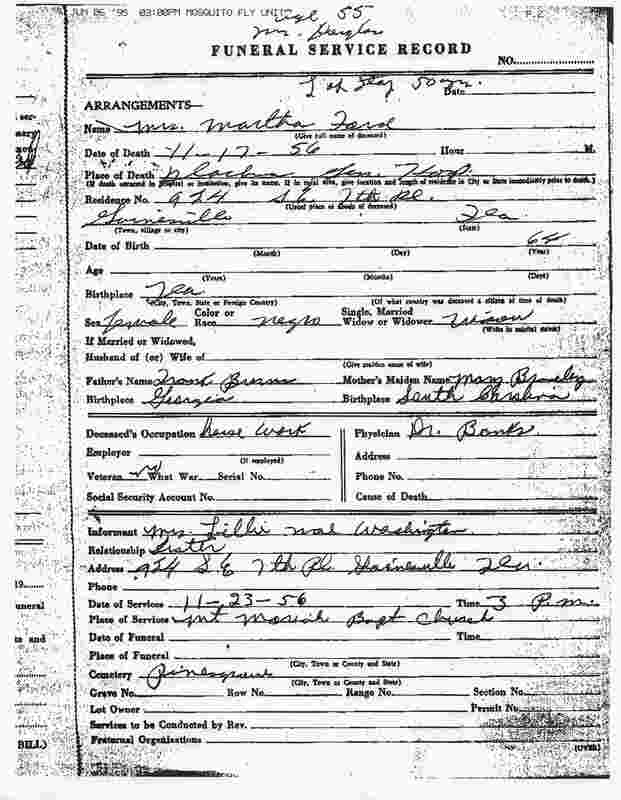 JUN 06 '96 03:00PM MOSQUITO FLY UNIT P.2
age 55
FUNERAL SERVICE RECORD
NO.
50 yrs.
Date
ARRANGEMENTS—
Name Mrs. Martha Ford
(Give full name of deceased)
Date of Death 11-17-56 Hour M.
Place of Death Alachua Gen. Hosp.
(If death occurred in hospital or institution, give its name. If in rural area, give location and length of residence in City or State immediately prior to death.)
Residence No. 924 S.E. 7th Pl.
(Usual place of abode of deceased)
Gainesville Fla.
(Town, village or city) (State)
Date of Birth
(Month) (Day) (Year)
Age
(Years) (Months) (Days)
Birthplace Fla
(City, Town, State or Foreign Country) (Of what country was deceased a citizen at time of death)
Sex Female Color or Race Negro Single, Married Widow or Widower Widow
If Married or Widowed,
Husband of (or) Wife of
(Give maiden name of wife)
Father's Name Frank Burns Mother's Maiden Name Mary
Birthplace Georgia Birthplace South Carolina
Deceased's Occupation house work Physician Dr. Banks
Employer Address
(If employed)
Veteran No What War Serial No. Phone No.
Social Security Account No. Cause of Death
Informant Mrs. Lillie Mae Washington
Relationship Sister
Address 924 S E 7th Pl. Gainesville Fla.
Phone
Date of Services 11-23-56 Time 3 P.M.
Place of Services Mt Moriah Bapt Church
Date of Funeral Time
Place of Funeral
(City, Town or County and State)
Cemetery Pinegrove
(City, Town or County and State)
Grave No. Row No. Range No. Section No.
Lot Owner Permit No.
Services to be Conducted by Rev.
Fraternal Organizations
BILL) (OVER)